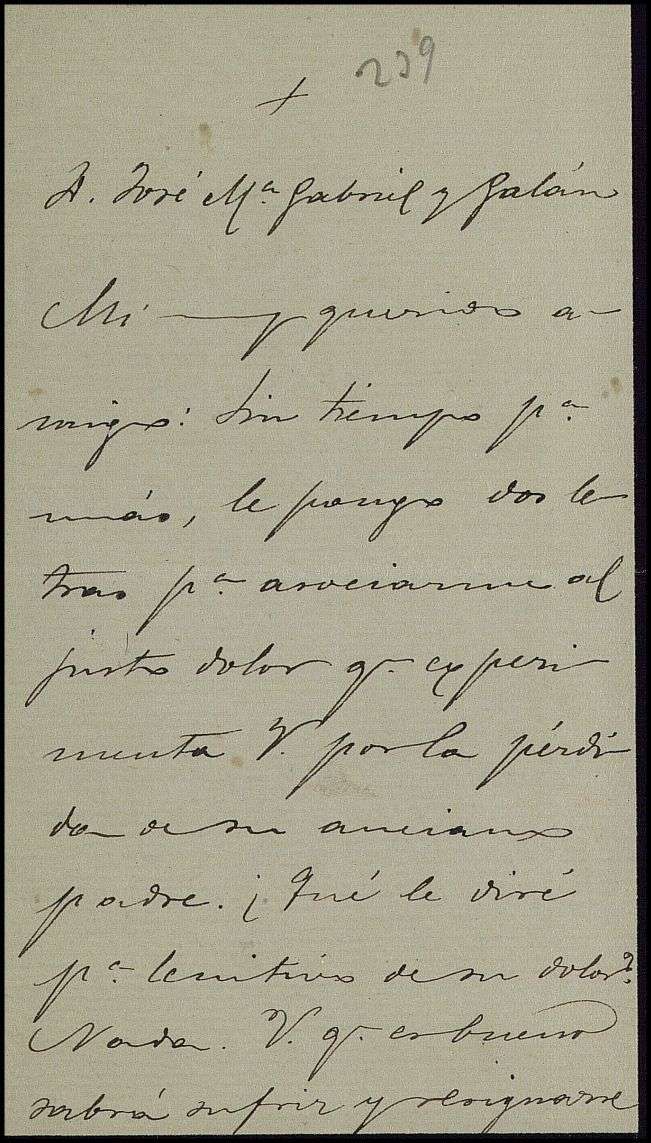 239
+
D. José Mª Gabriel y Galán
Mi y querido a-
migo: Sin tiempo pª
más, le pongo dos le
tras pª asociarme al
justo dolor q. experi
menta V. por la pérdi
da de su anciano
padre. ¿Qué le diré
pª lenitivo de su dolor?
Nada. V. q. es bueno
sabrá sufrir y resignarse